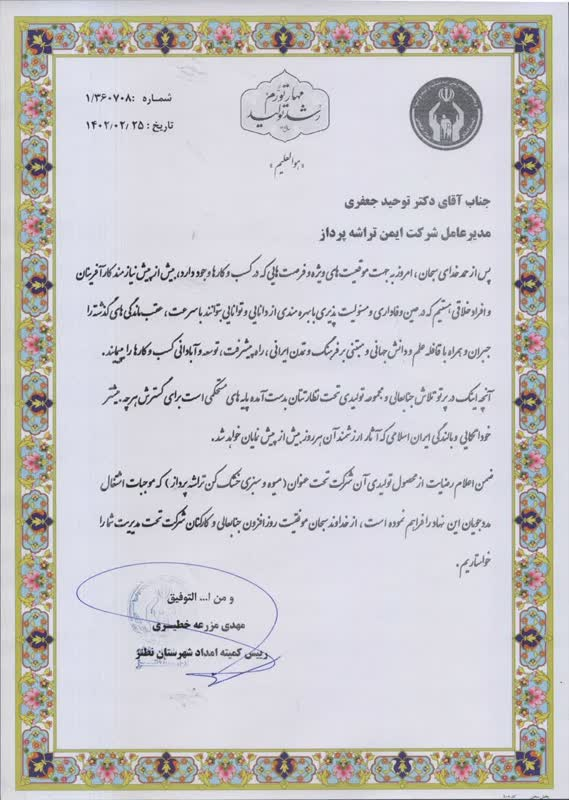 شماره : ۱/۳۶۰۷۰۸
تاریخ : ۱۴۰۲/۰۲/۲۵
مهار تورم
رشد تولید
«هوالعلیم»
جناب آقای دکتر توحید جعفری
مدیرعامل شرکت ایمن تراشه پرداز
پس از حمد خدای سبحان ، امروز به جهت موقعیت های ویژه و فرصت هایی که در کسب و کارها وجود دارد، بیش از پیش نیازمند کارآفرینان
و افراد خلاقی هستیم که در عین وفاداری و مسئولیت پذیری با بهره مندی از دانایی و توانایی بتوانند با سرعت ، عقب ماندگی های گذشته را
جبران و همراه با قافله علم و دانش جهانی و مبتنی بر فرهنگ و تمدن ایرانی ، راه پیشرفت، توسعه و آبادانی کسب و کارها را بپیمایند.
آنچه اینک در پرتو تلاش جنابعالی و مجموعه تولیدی تحت نظارتتان بدست آمده پایه های مستحکمی است برای گسترش هرچه بیشتر
خوداتکایی و بالندگی ایران اسلامی که آثار ارزشمند آن هر روز بیش از پیش نمایان خواهد شد.
ضمن اعلام رضایت از محصول تولیدی آن شرکت تحت عنوان (میوه و سبزی خشک کن تراشه پرداز ) که موجبات اشتغال
مددجویان این نهاد را فراهم نموده است ، از خداوند سبحان موفقیت روزافزون جنابعالی و کارکنان شرکت تحت مدیریت شما را
خواستاریم.
و من ا... التوفیق
مهدی مزرعه خطیری
رییس کمیته امداد شهرستان نطنز